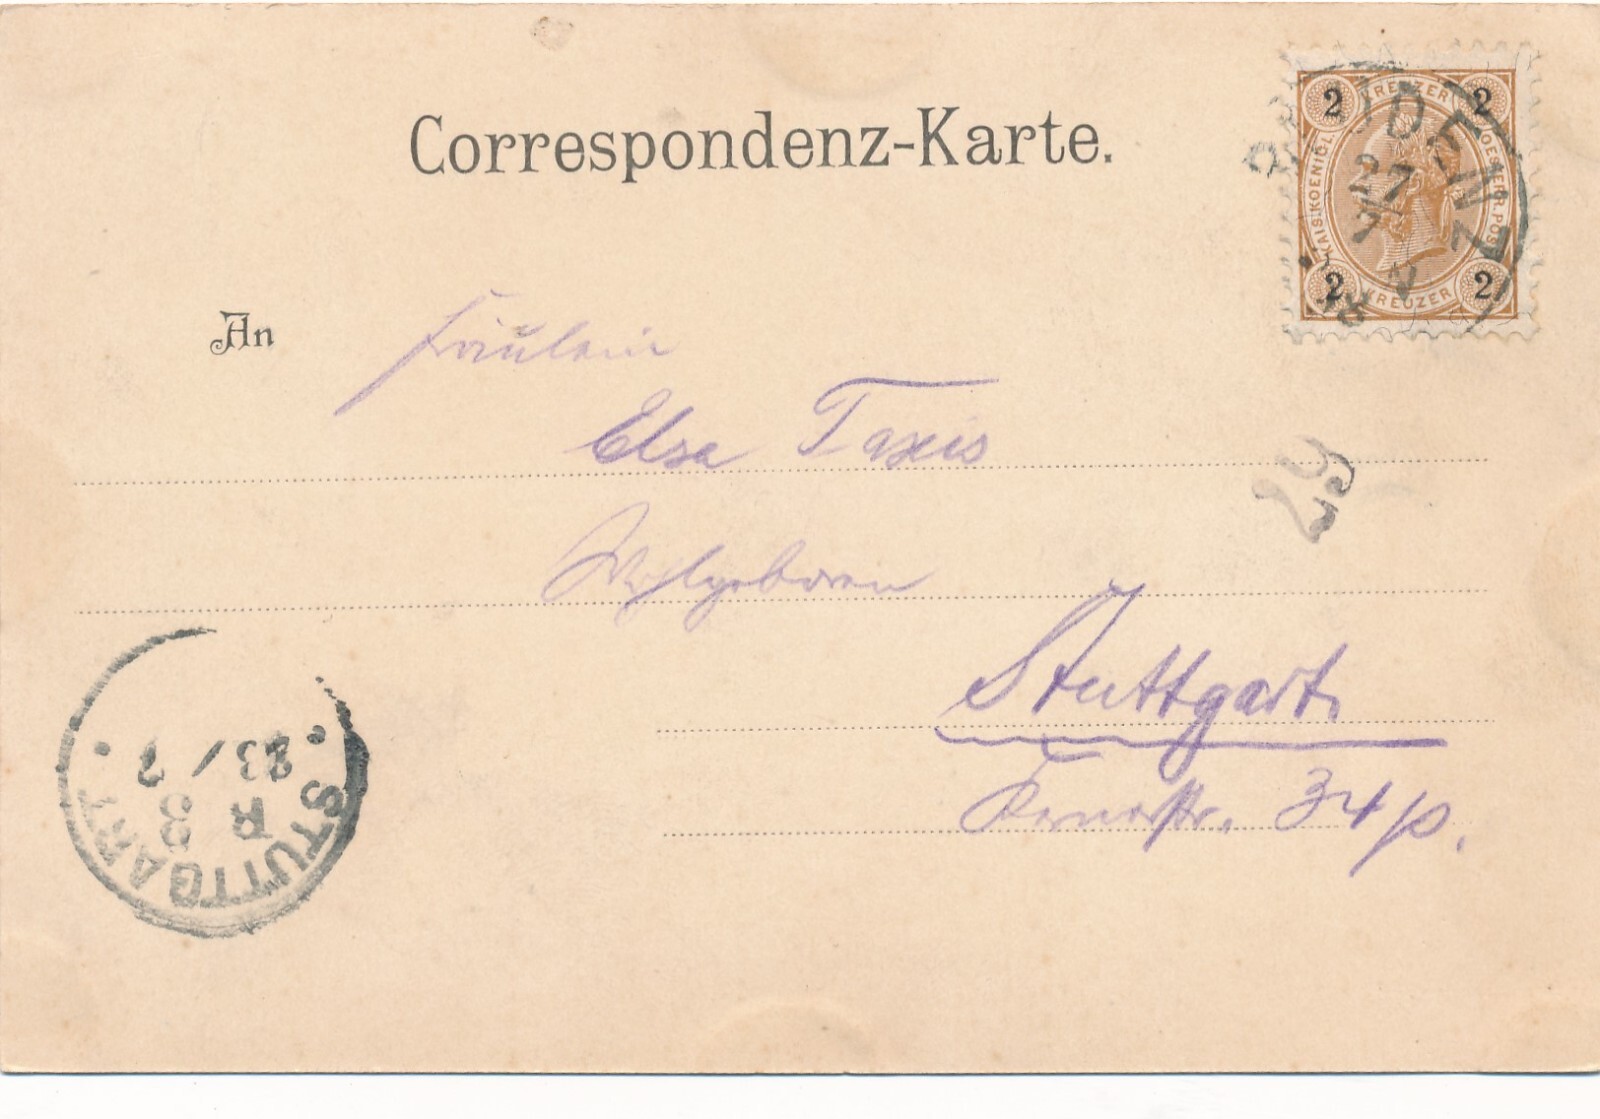 Correspondenz-Karte.
2 KREUZER 2
KAIS. KOENIGL. OESTERR. POST
2 KREUZER 2
27
7
An
Fräulein
Elsa Taxis
29
Wohlgeboren
Stuttgart.
Kernerstr. 34/p.
STUTTGART
R
23/7